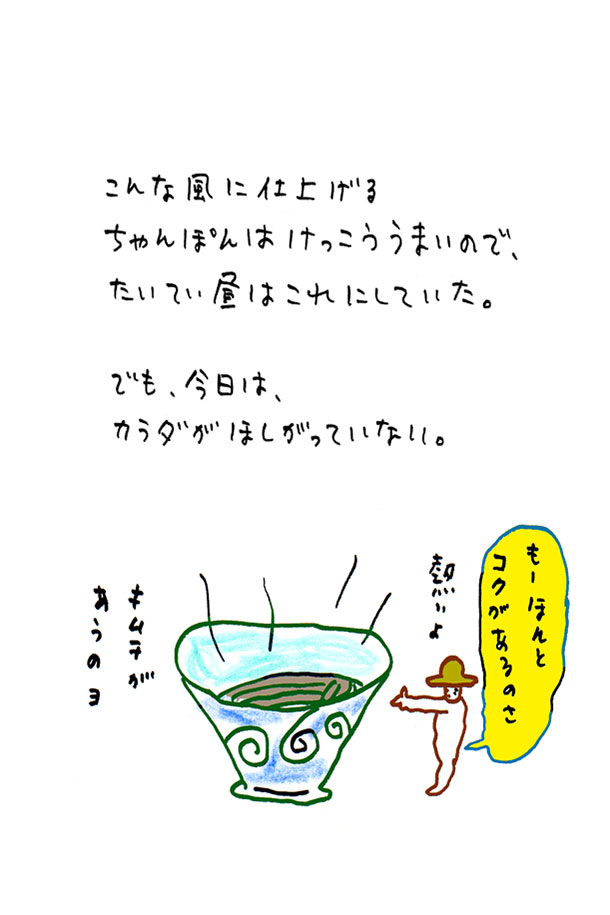 こんな風に仕上げる
ちゃんぽんはけっこううまいので、
たいてい昼はこれにしていた。
でも、今日は、
カラダがほしがっていない。
もーほんと
コクがあるのさ
熱いよ
キムチが
あうのヨ